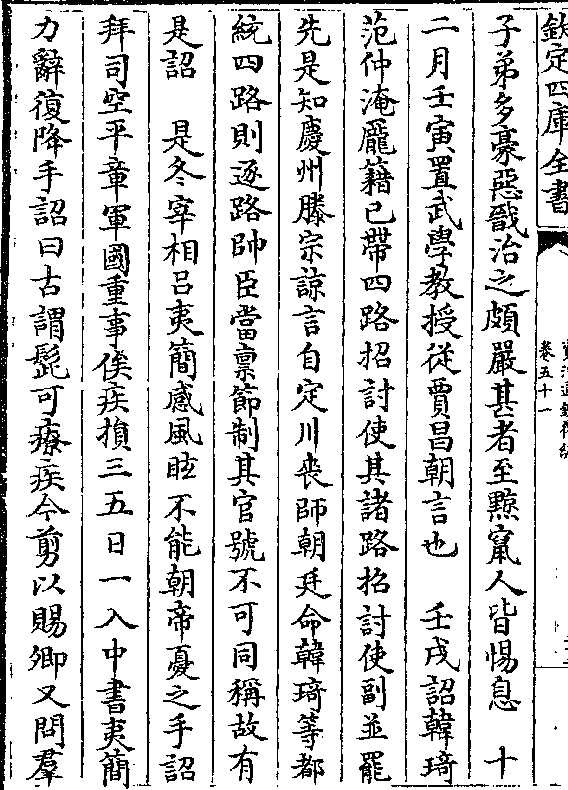 欽定四庫全書
卷五十一
子弟多豪惡戩治之頗嚴甚者至黥竄人皆惕息　十
二月壬寅置武學教授從賈昌朝言也　壬戌詔韓琦
范仲淹龐籍已帶四路招討使其諸路招討使副並罷
先是知慶州滕宗諒言自定川喪師朝廷命韓琦等都
統四路則逐路帥臣當禀節制其官號不可同稱故有
是詔　是冬宰相呂夷簡感風眩不能朝帝憂之手詔
拜司空平章軍國重事俟疾損三五日一入中書夷簡
力辭復降手詔曰古謂髭可療疾今剪以賜卿又問羣